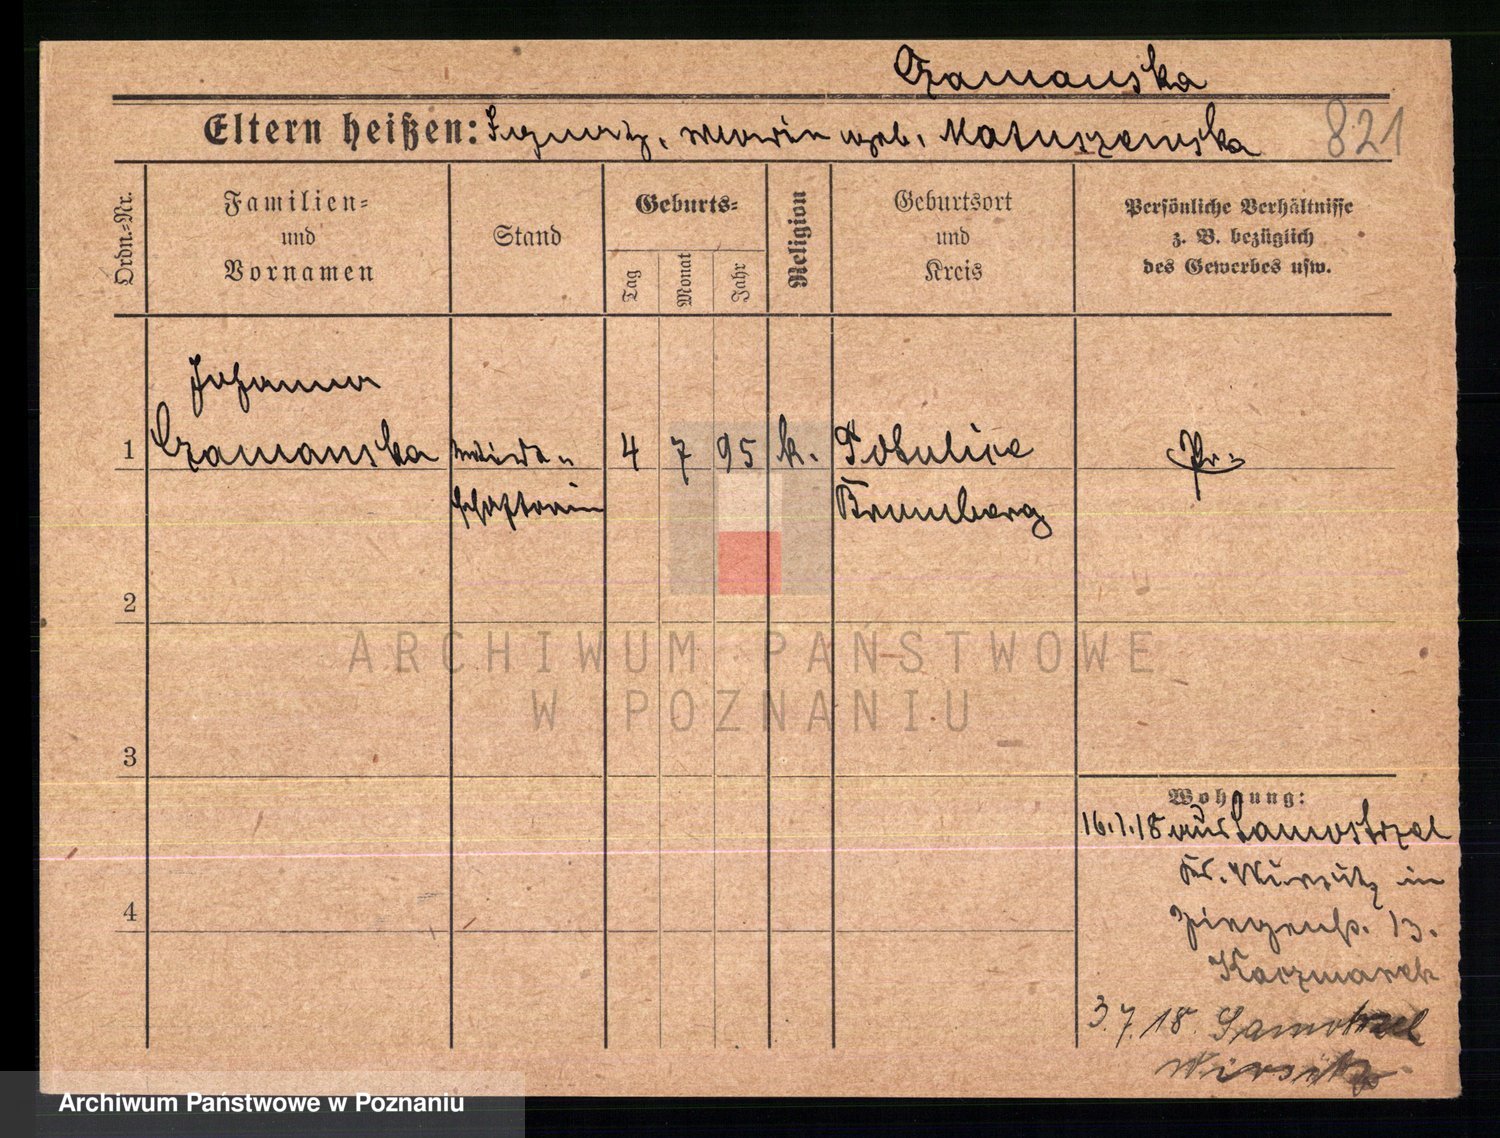 Czamanska
Eltern heißen: Ignatz, Maria geb. Matuszewska 821
Ordn.=Nr.
Familien=
und
Vornamen
Stand
Geburts=
Tag
Monat
Jahr
Religion
Geburtsort
und
Kreis
Persönliche Verhältnisse
z. B. bezüglich
des Gewerbes usw.
Johanna
1 Czamanska 4 7 95 k. Potulice Pr.
Bromberg
2
ARCHIWUM PAŃSTWOWE
W POZNANIU
3
Wohnung:
16.1.18 aus Samostrzel
Kr. Wirsitz in
13.
Kaczmarek
4
3.7.18. Samostrzel
Wirsitz
Archiwum Państwowe w Poznaniu